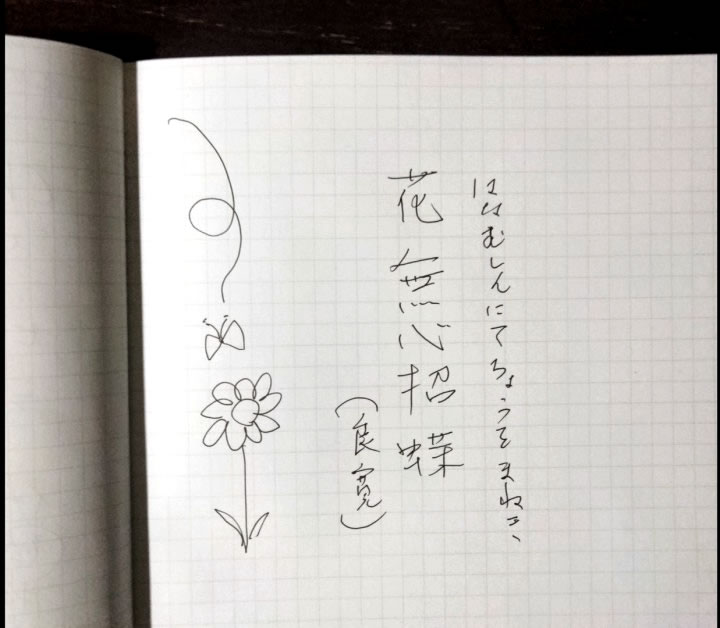 はなむしんにてちょうをまねき、
花無心招蝶
(良寛)